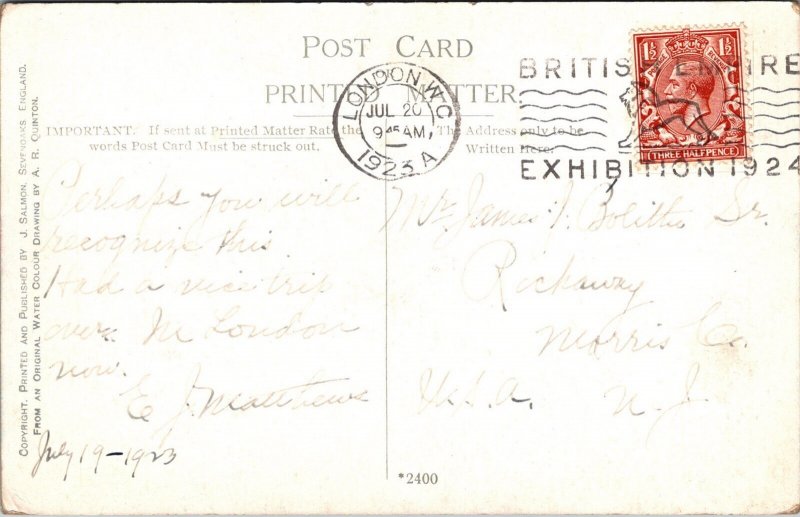 POST CARD
PRINTED MATTER.
IMPORTANT. If sent at Printed Matter Rate the
words Post Card Must be struck out.
The Address only to be
Written Here.
LONDON. W.C.
JUL 20
9 45 AM
1923 A
BRITISH EMPIRE
EXHIBITION 1924
1½ 1½
POSTAGE REVENUE
THREE HALFPENCE
COPYRIGHT. PRINTED AND PUBLISHED BY J. SALMON, SEVENOAKS, ENGLAND.
FROM AN ORIGINAL WATER COLOUR DRAWING BY A. R. QUINTON.
Perhaps you will
recognize this
Had a nice trip
over. In London
now.
E J. Matthews
July 19-1923
Mr. James J. Bolitho Sr.
Rockaway
Morris Co.
U.S.A. N. J.
*2400